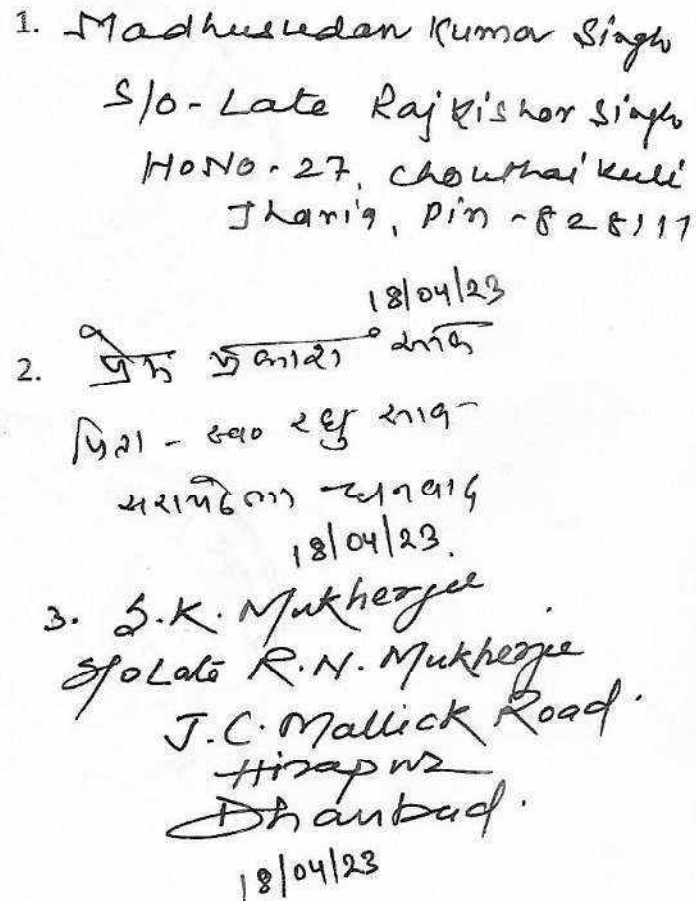 1. Madhusudan Kumar Singh
S/o - Late Raj Kishor Singh
HoNo. 27, Chouthai Kuli
Jharia, Pin - 828111
18/04/23
2. प्रेम प्रकाश साव
पिता - स्व० रघु साव
सरायढेला धनबाद
18/04/23.
3. S.K. Mukherjee
S/o Late R.N. Mukherjee
J.C. Mallick Road.
Hirapur
Dhanbad.
18/04/23